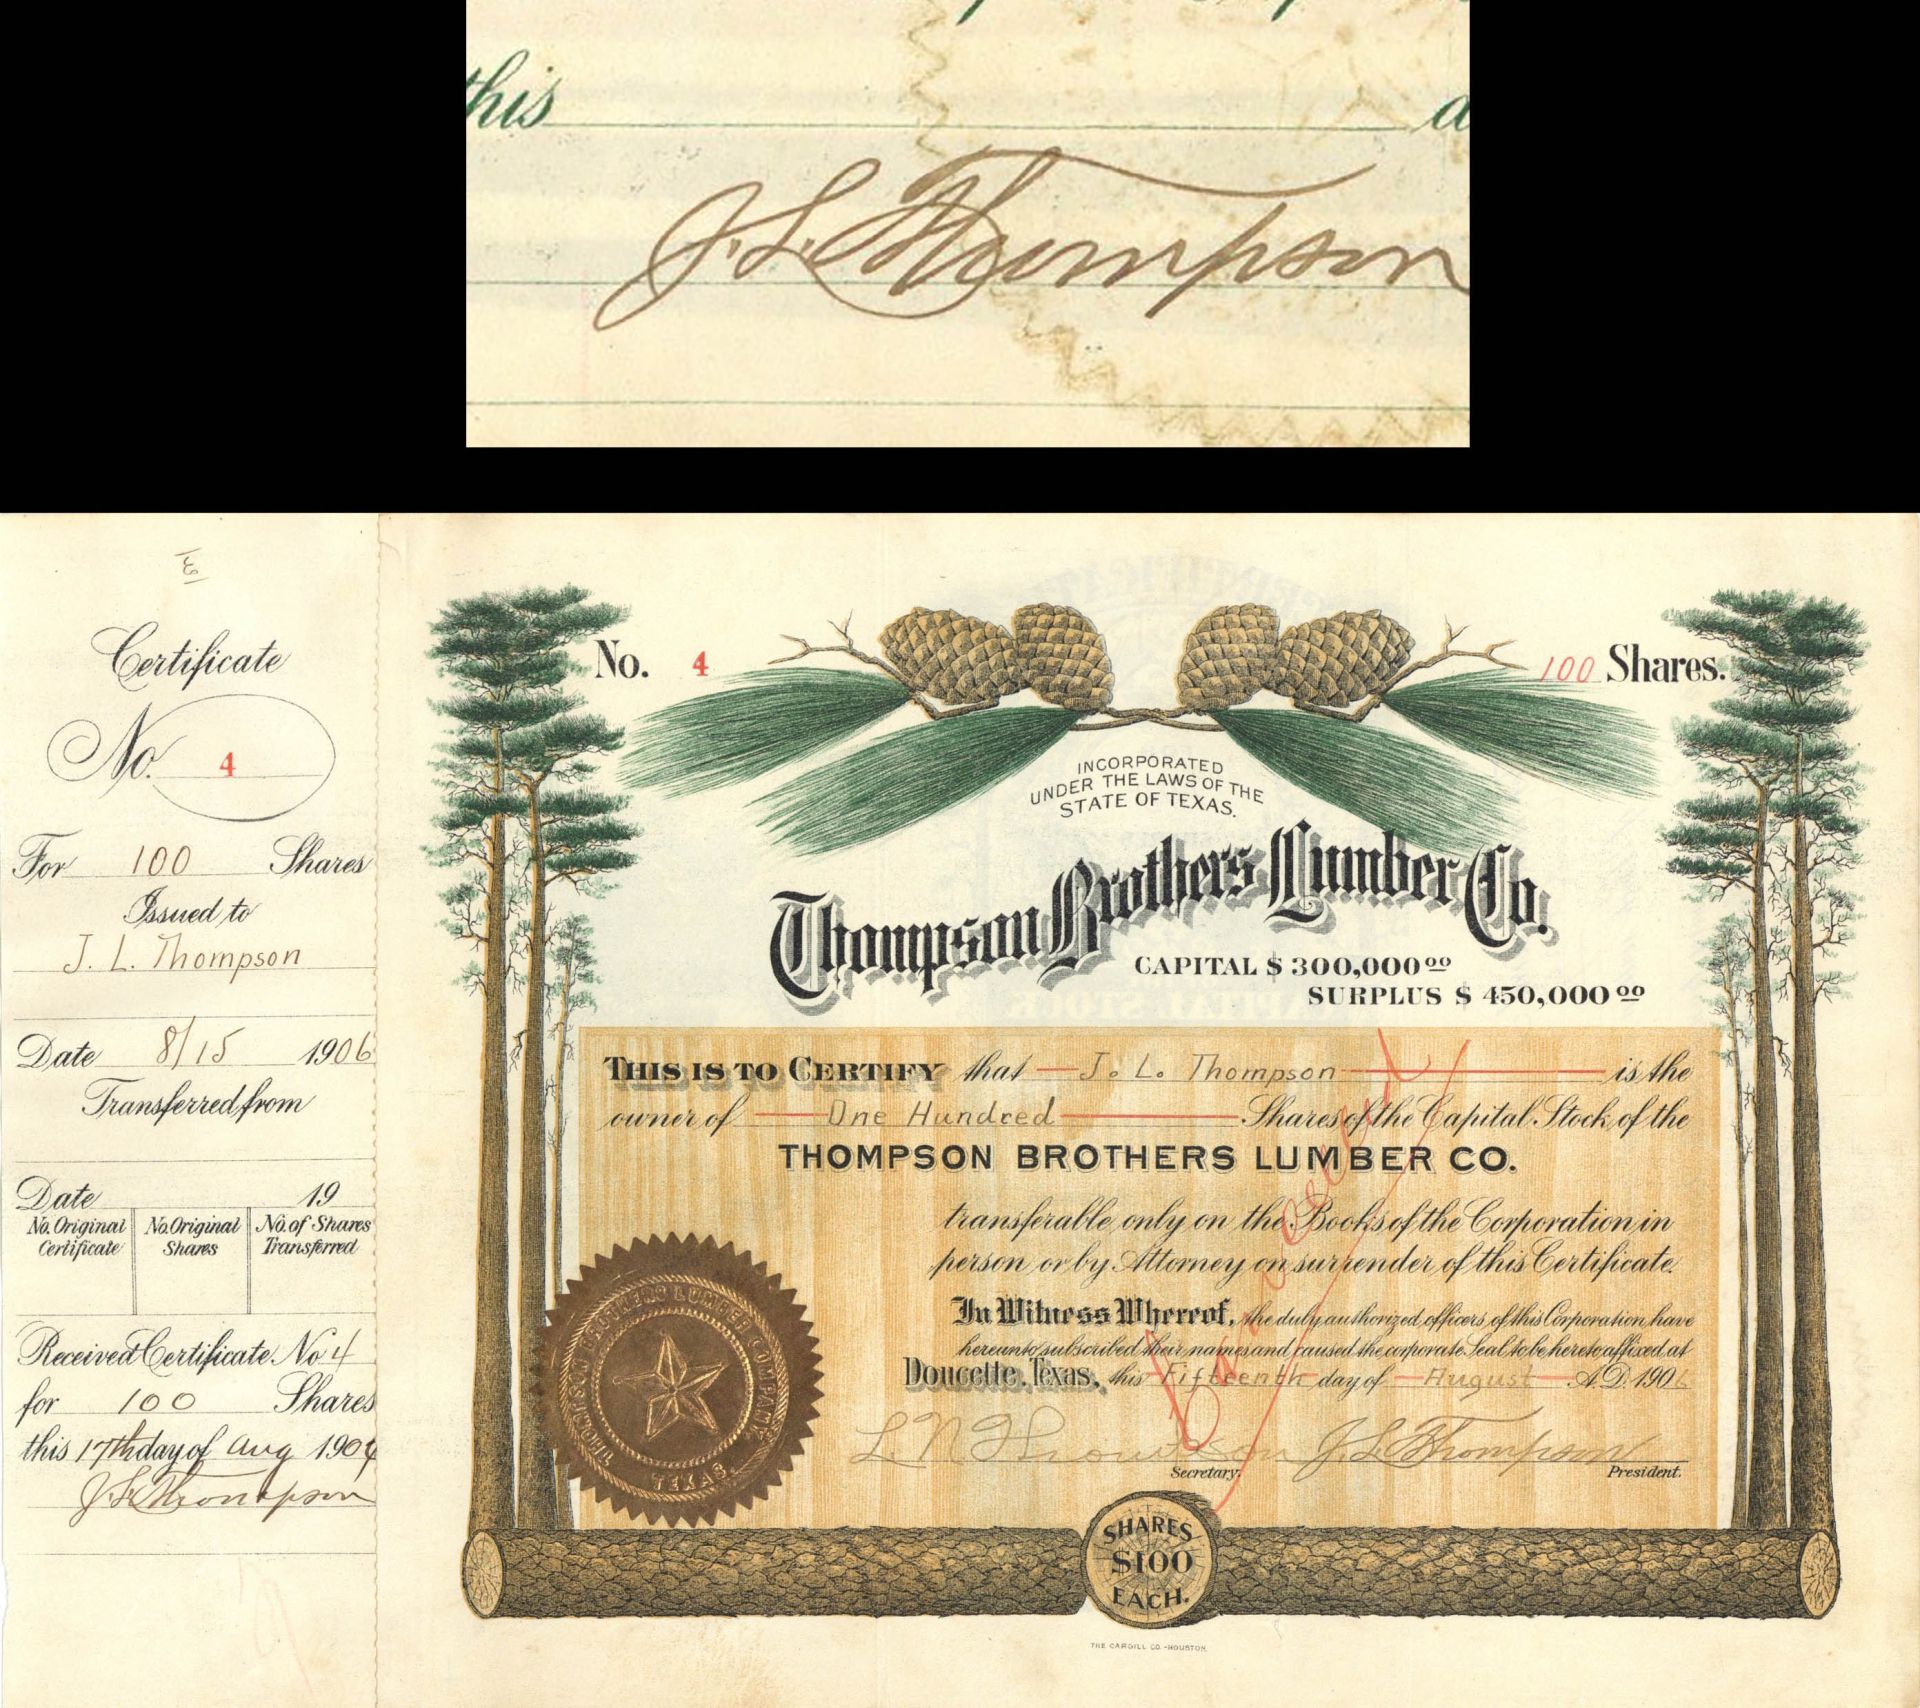 this a
J. L. Thompson
Certificate
No. 4
For 100 Shares
Issued to
J. L. Thompson
Date 8/15 1906
Transferred from
Date 19
No. Original Certificate No. Original Shares No. of Shares Transferred
Received Certificate No 4
for 100 Shares
this 17th day of Aug 190
J. L. Thompson
No. 4
100 Shares.
INCORPORATED
UNDER THE LAWS OF THE
STATE OF TEXAS.
Thompson Brothers Lumber Co.
CAPITAL $ 300,000 00
SURPLUS $ 450,000 00
THIS IS TO CERTIFY that J. L. Thompson is the
owner of One Hundred Shares of the Capital Stock of the
THOMPSON BROTHERS LUMBER CO.
transferable only on the Books of the Corporation in
person or by Attorney on surrender of this Certificate.
In Witness Whereof, the duly authorized officers of this Corporation have
hereunto subscribed their names and caused the corporate Seal to be hereto affixed at
Doucette, Texas, this Fifteenth day of August A.D. 1906
L N Thompson J. L. Thompson
Secretary. President.
THOMPSON BROTHERS LUMBER COMPANY.
TEXAS.
SHARES
$100
EACH.
THE CARGILL CO.-HOUSTON.